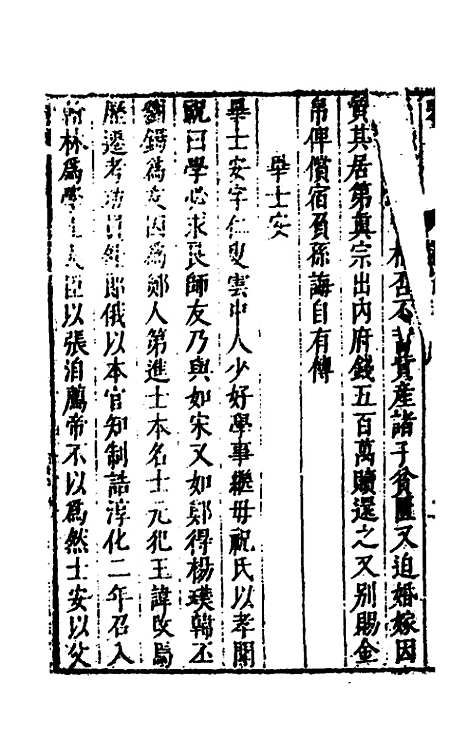 相否不計貲產諸子貧匱又迫婚嫁因
質其居第真宗出內府錢五百萬贖還之又別賜金
帛俾償宿負孫誨自有傳
畢士安
畢士安字仁叟雲中人少好學事繼母祝氏以孝聞
祝曰學必求良師友乃與如宋又如鄭得楊璞韓丕
劉錫為友因為鄭人第進士本名士元犯王諱改焉
歷遷考功員外郎俄以本官知制誥淳化二年召入
翰林為學士大臣以張洎薦帝不以為然士安以父